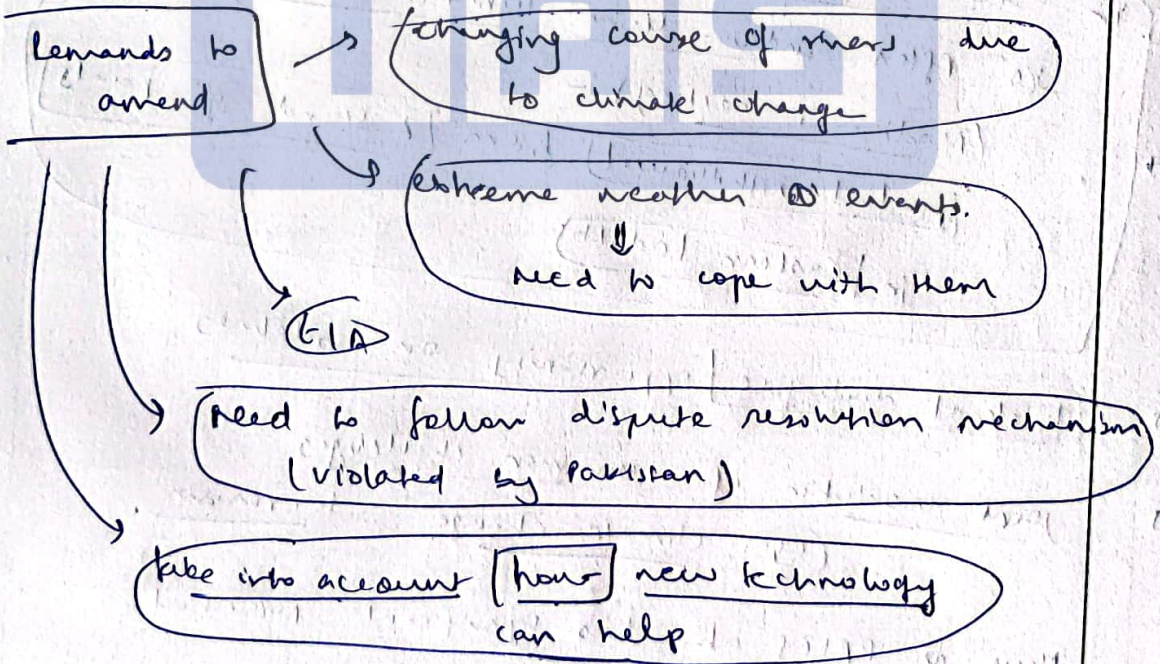 IAS
Demands to
amend
changing course of rivers due
to climate change
extreme weather events.
need to cope with them
EIA
need to follow dispute resolution mechanism
(violated by Pakistan)
take into account how new technology
can help